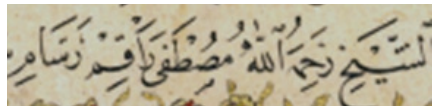 الشَّيْخِ رَحِمَهُ اللّٰهُ مُصْطَفَى رَاقِمْ رَسَّامِ